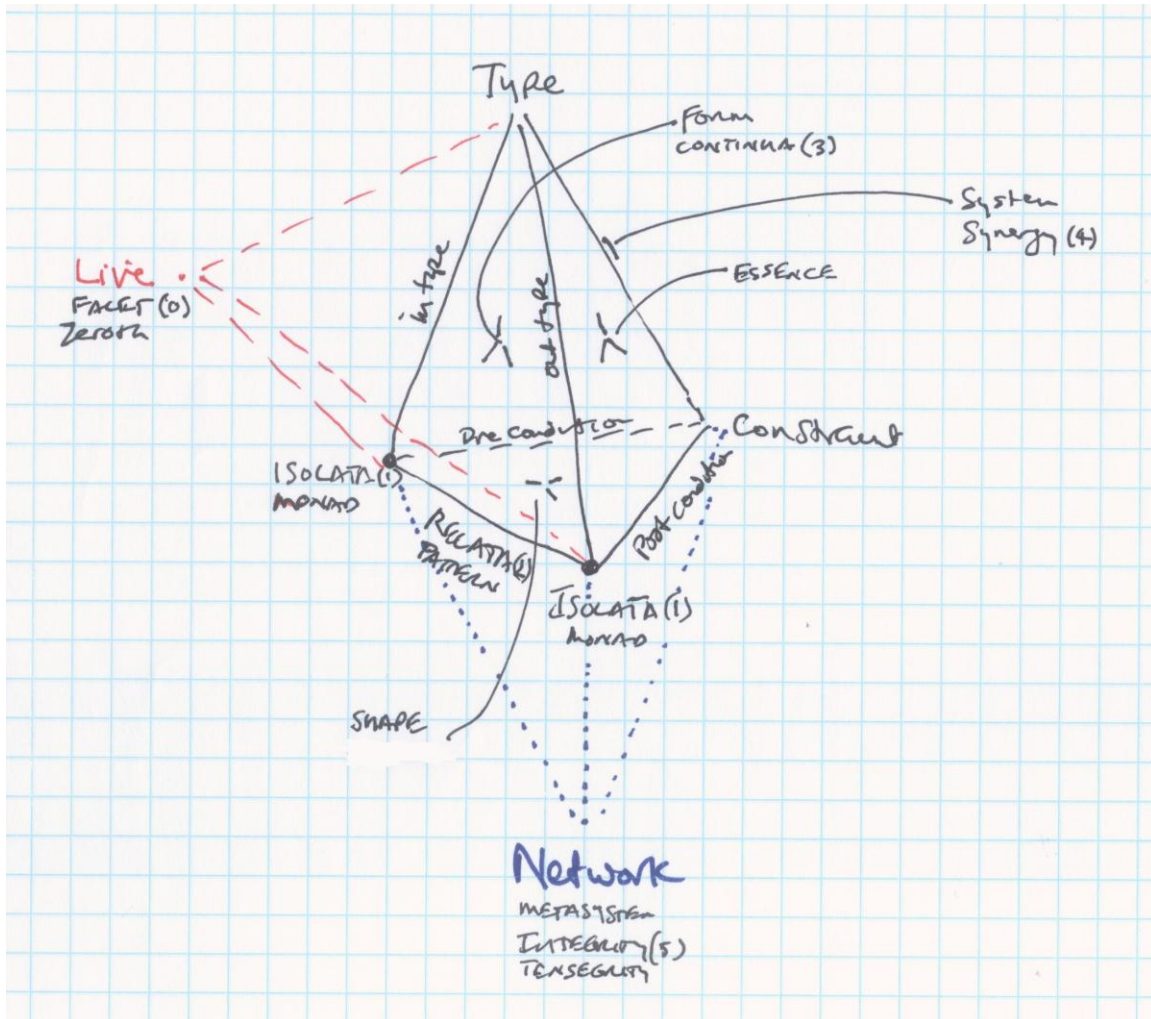 Type
Form
CONTINUA (3)
System
Synergy (4)
ESSENCE
Live
FACET (0)
Zeroth
in type
out type
Pre condition
Constraint
ISOLATA (1)
MONAD
RELATA (2)
PATTERN
Post condition
ISOLATA (1)
MONAD
SHAPE
Network
METASYSTEM
INTEGRITY (5)
TENSEGRITY